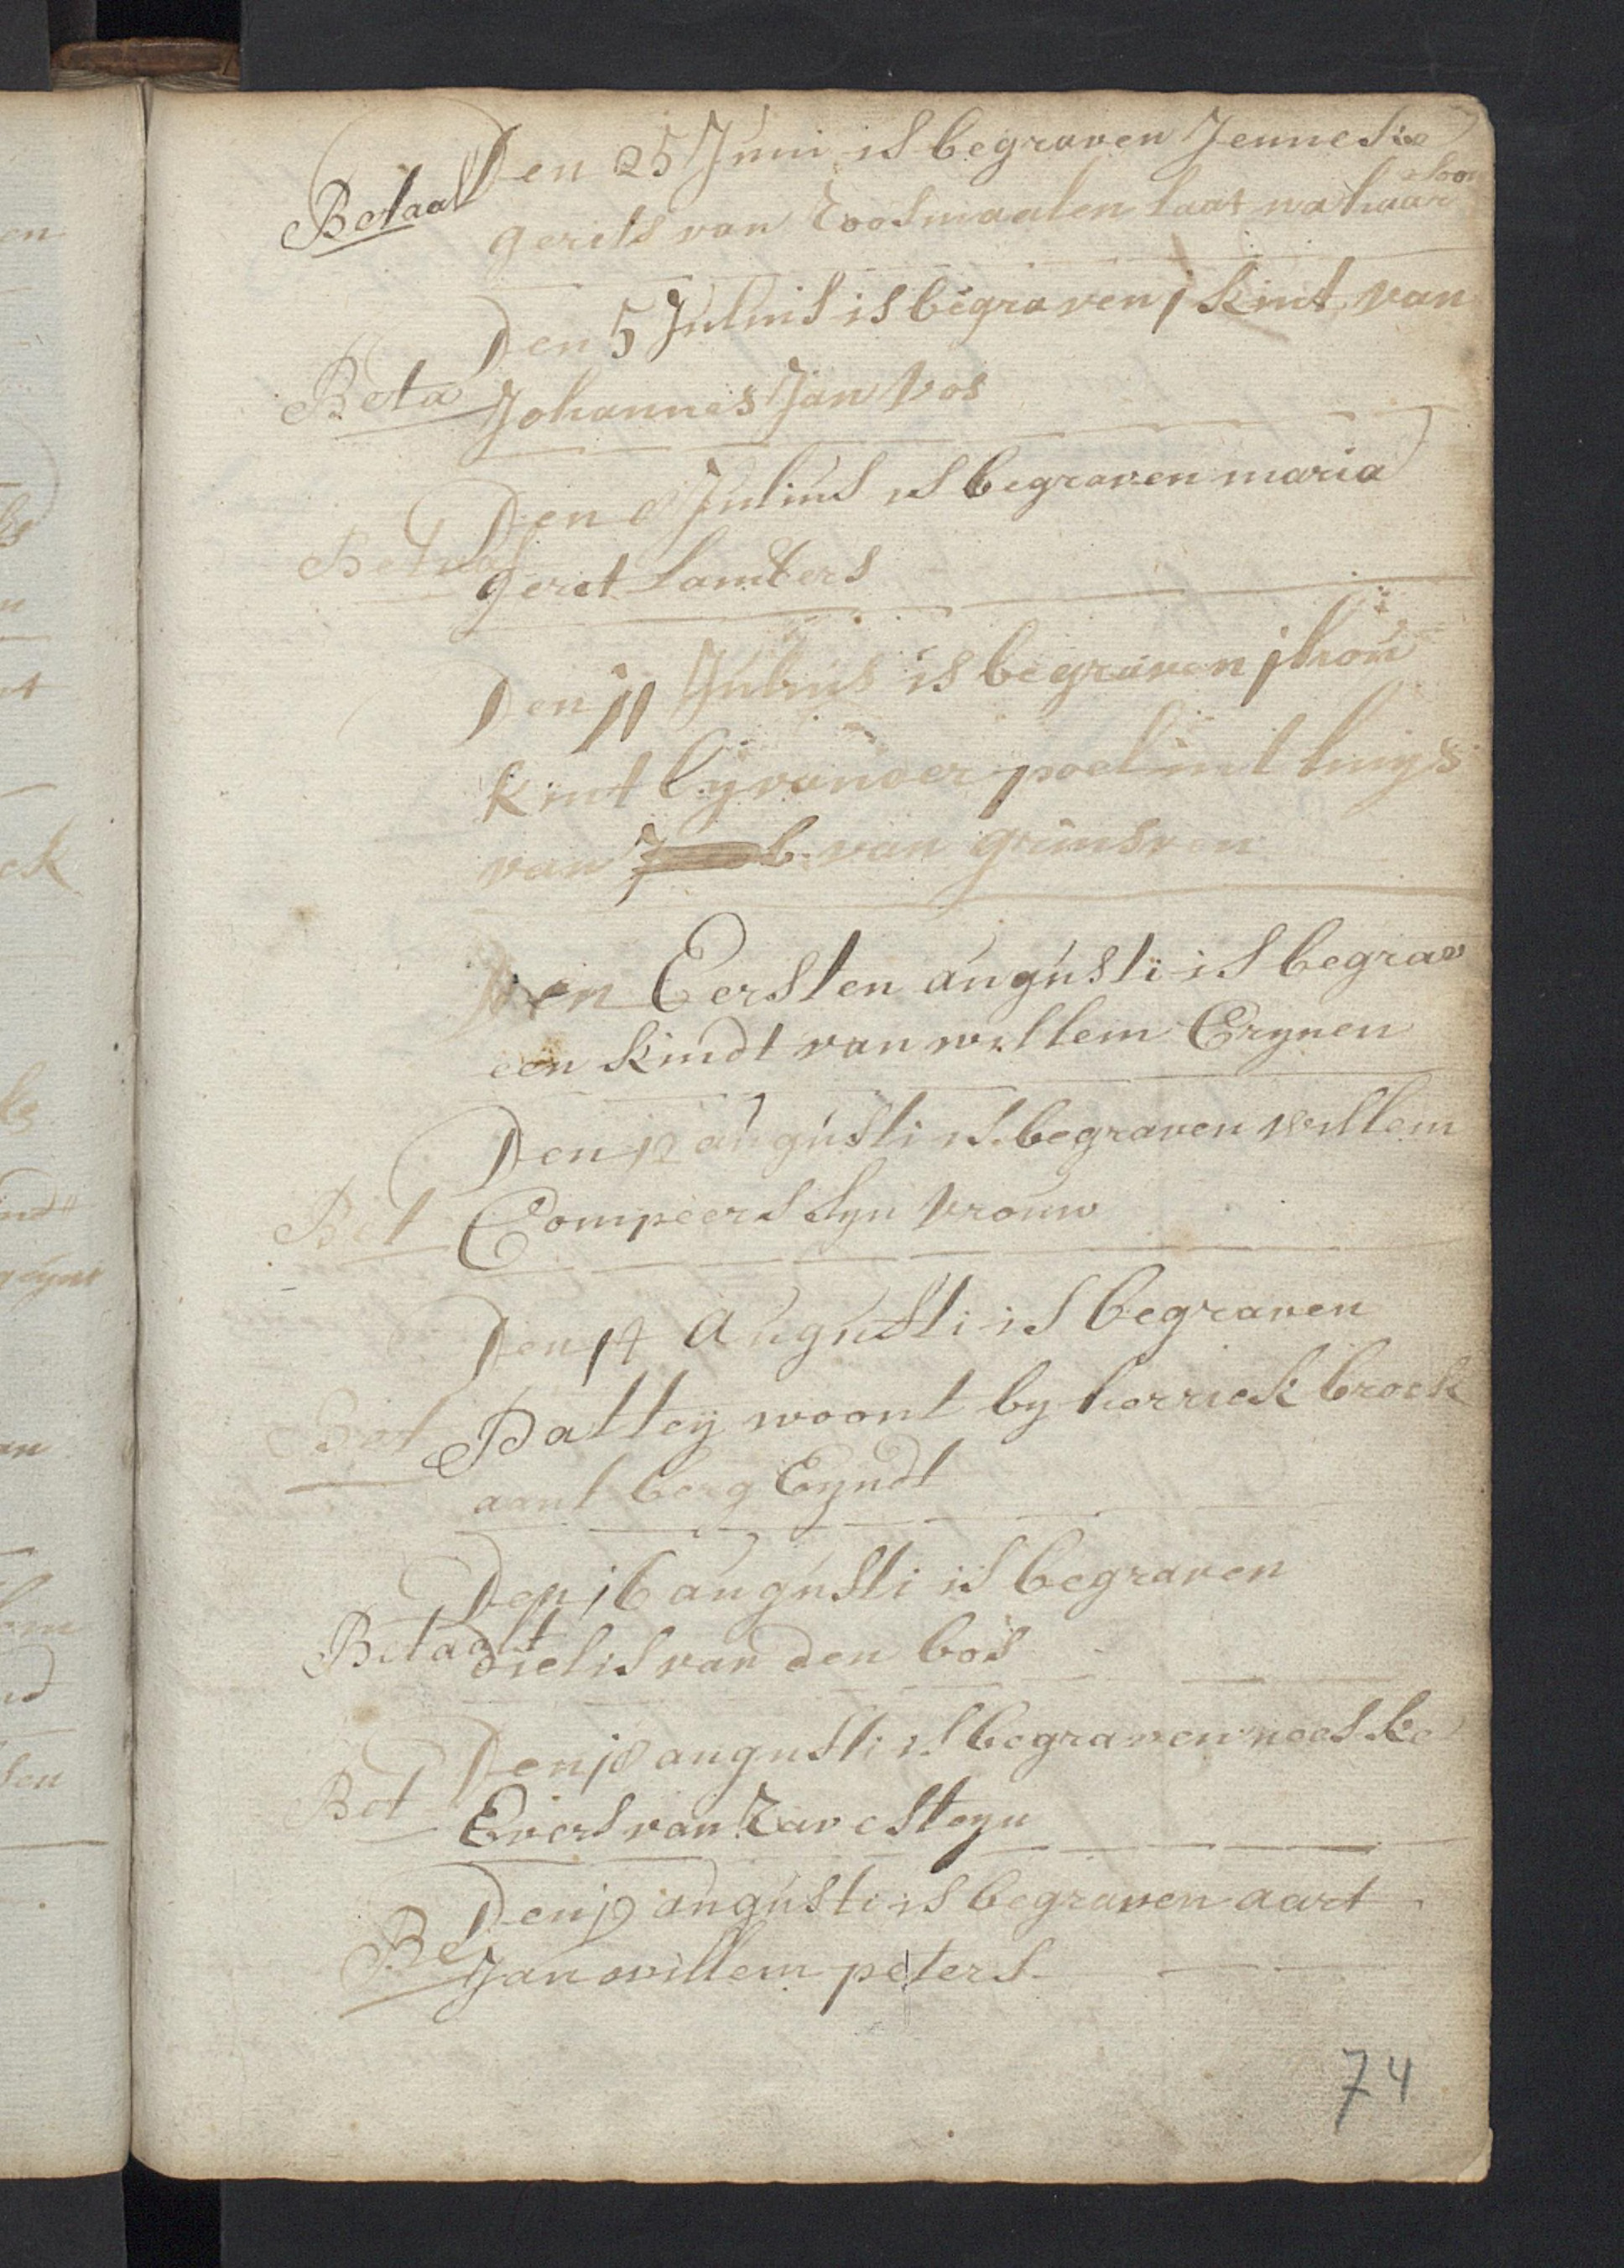 Den 25 Juni is begraven Jenneske
Betaalt
gerits van Roosmaalen laat na haar
soon
Den 5 Julius is begraven j kint van
Beta Johannes Jan Vos
Den 8 Julius is begraven maria
Betaalt
geret Lambers
Den 11 Julius is begraven j
kint by vander poel int huys
van van grinsven
Den Eersten augusti is begrav
een kindt van willem Crynen
Den 12 augusti is begraven willem
Bet Compeers Syn Vrouw
Den 14 augusti is begraven
Bet Battey woont by herrick broek
aant berg Eyndt
Den 16 augusti is begraven
Betaalt dielis van den bos
Den 18 augusti is begraven neeske
Bet
Evers van Ravesteyn
Den 19 augusti is begraven aart
Be Jan willem peters
74